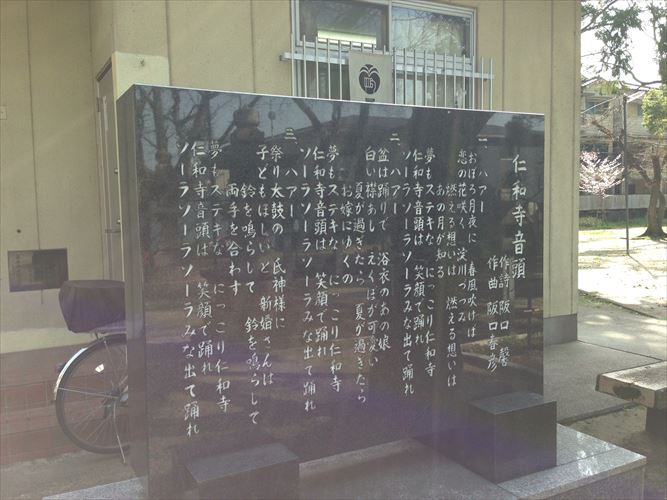 仁和寺音頭
作詩 阪口 馨
作曲 阪口春彦
一 ハアー
おぼろ月夜に 春風吹けば
恋の花咲く 淀川づつみ
燃える想いは 燃える想いは
あの月が知る
夢もステキな にっこり仁和寺
仁和寺音頭は 笑顔で踊れ
ソーラソーラソーラみな出て踊れ
二 ハアー
盆は踊りで 浴衣のあの娘
白い襟あし えくぼが可愛い
夏が過ぎたら 夏が過ぎたら
お嫁にゆくの
夢もステキな にっこり仁和寺
仁和寺音頭は 笑顔で踊れ
ソーラソーラソーラみな出て踊れ
三 ハアー
祭り太鼓の 氏神様に
子どもほしいと 新婚さんは
鈴を鳴らして 鈴を鳴らして
両手を合わす
夢もステキな にっこり仁和寺
仁和寺音頭は 笑顔で踊れ
ソーラソーラソーラみな出て踊れ